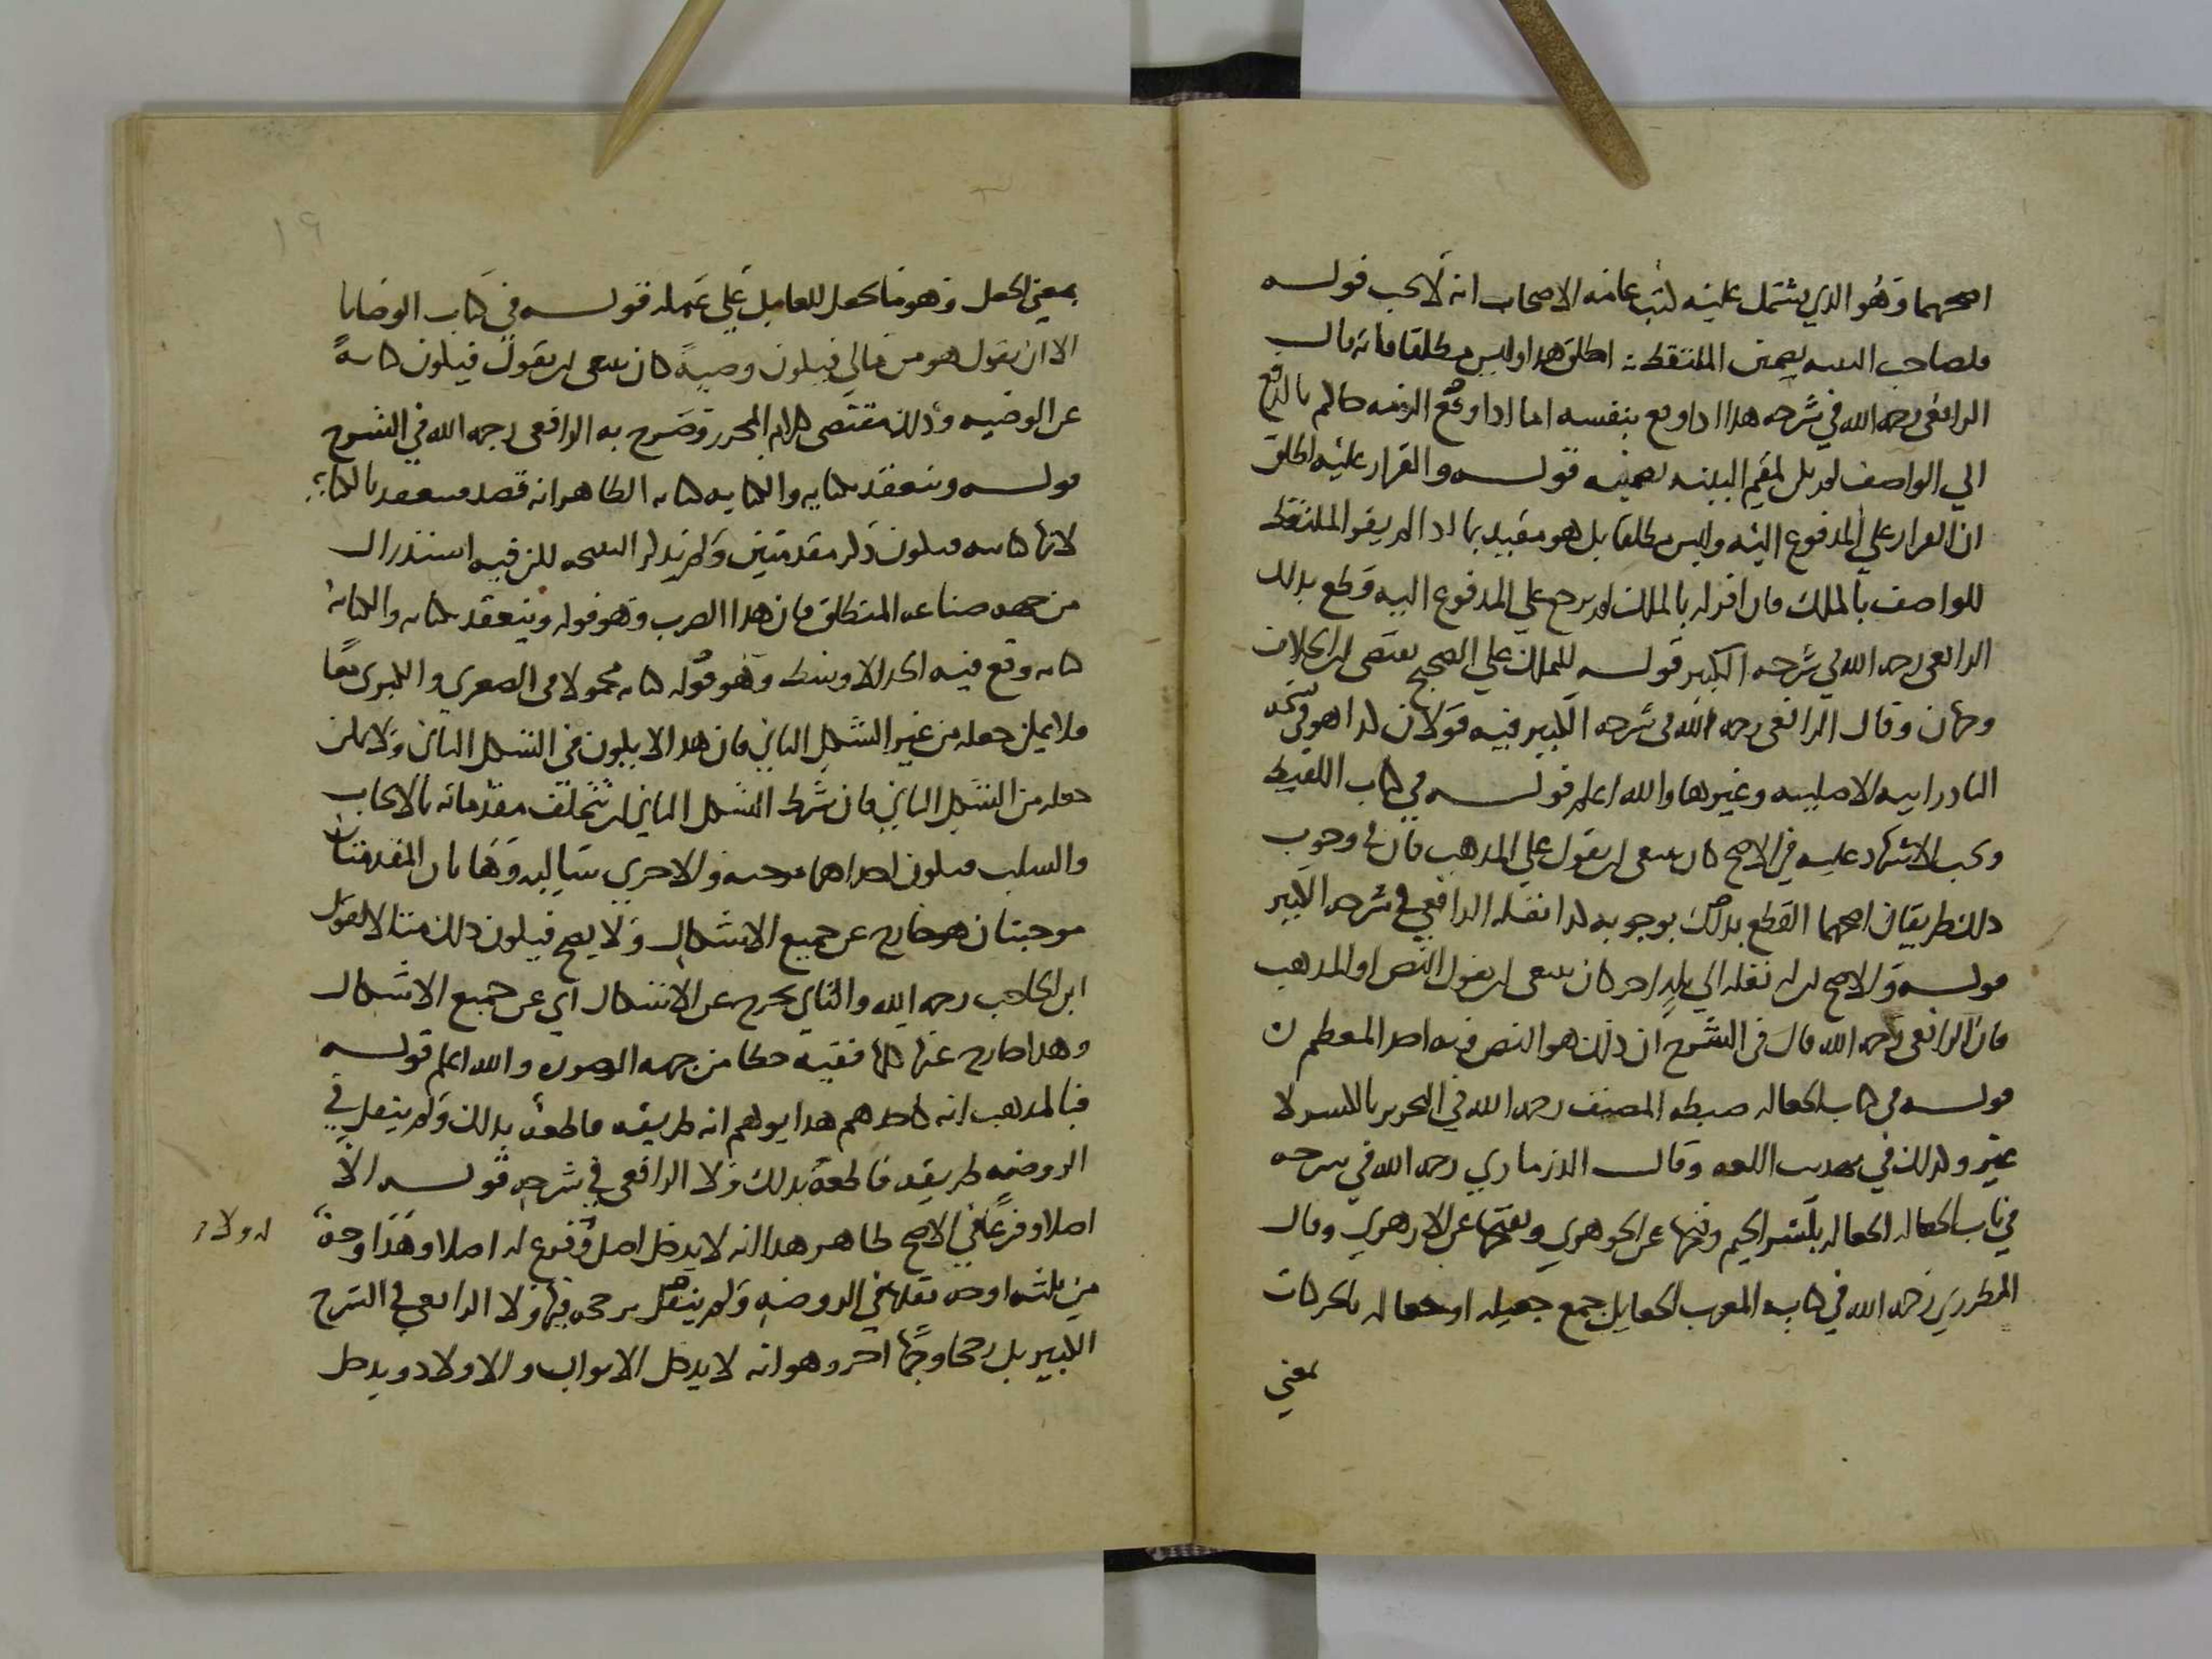 اصحهما وهو الذي يشتمل عليه كتب عامه الاصحاب انه لا يجب قوله
فلصاحب البينه تضمين الملتقط اطلق هذا وليس مطلقا فانه قال
الرافعي رحمه الله في شرحه هذا اذا دفع بنفسه اما اذا دفع الزمه حاكم بالدفع
الي الواصف لم يكن لمقيم البينه تضمينه قوله والقرار عليه اطلق
ان القرار علي المدفوع اليه وليس مطلقا بل هو مقيد بما اذا لم يقر الملتقط
للواصف بالملك فان اقر له بالملك لم يرجع علي المدفوع اليه وقطع بذلك
الرافعي رحمه الله في شرحه الكبير قوله للملك علي الصحيح يقتضي ان الخلاف
وجهان وقال الرافعي رحمه الله في شرحه الكبير فيه قولان كذا هو في نسخه
البادراييه الاصليه وغيرها والله اعلم قوله في كتاب اللقيط
ويجب الاشهاد عليه في الاصح كان ينبغي ان يقول علي المذهب فان في وجوب
ذلك طريقان اصحهما القطع بذلك بوجوبه كذا نقله الرافعي في شرحه الكبير
قوله والاصح ان له نقله الي بلد اخر كان ينبغي ان يقول النص او المذهب
فان الرافعي رحمه الله قال في الشرح ان ذلك هو النص وبه اخذ المعظم
قوله في كتاب الجعاله ضبطه المصنف رحمه الله في التحرير بالكسر لا
غير وكذلك في تهذيب اللغه وقال الدزماري رحمه الله في شرحه
في باب الجعاله الجعاله بكسر الجيم وفتحها عن الجوهري وبفتحها عن الازهري وقال
المطرزي رحمه الله في كتابه المغرب الجعايل جمع جعيله او جعاله بالحركات
بمعني
١٩
بمعني الجعل وهو ما يجعل للعامل علي عمله قوله في كتاب الوصايا
الا ان يقول هو من مالي فيكون وصيه كان ينبغي ان يقول فيكون كنايه
عن الوصيه وذلك مقتضي كلام المحرر وصرح به الرافعي رحمه الله في الشرح
قوله وينعقد بكنايه والكتابه كنايه الظاهر انه قصد فينعقد بالكتابه
لانها كنايه فيكون ذكر مقدمتين ولم يذكر النتيجه لكن فيه استدراك
من جهه صناعه المنطق فان هذا الضرب وهو قوله وينعقد بكنايه والكتابه
كنايه وقع فيه الحد الاوسط وهو قوله كنايه محمولا في الصغري والكبري معا
فلا يمكن جعله من غير الشكل الثاني فان هذا لا يكون في الشكل الثاني ولا يمكن
جعله من الشكل الثاني فان شرط الشكل الثاني ان تختلف مقدماته بالايجاب
والسلب فيكون احداهما موجبه والاخري سالبه وهاتان المقدمتان
موجبتان هو خارج عن جميع الاشكال ولا يصح فيكون ذلك مثالا لقول
ابن الحاجب رحمه الله والثاني يخرج عن الاشكال اي عن جميع الاشكال
وهذا خارج عنها كلها ففيه خطا من جهه الصوره والله اعلم قوله
فالمذهب انه كاحدهم هذا يوهم انه طريقه قاطعه بذلك ولم ينقل في
الروضه طريقه قاطعه بذلك ولا الرافعي في شرحه قوله الا
اصلا وفرعا في الاصح ظاهر هذا انه لا يدخل اصل وفرع له اصلا وهذا وجه
من ثلثه اوجه نقلها في الروضه ولم ينقل ترجحه فيها ولا الرافعي في الشرح
الكبير بل رجحا وجها اخر وهو انه لا يدخل الابوان والاولاد ويدخل